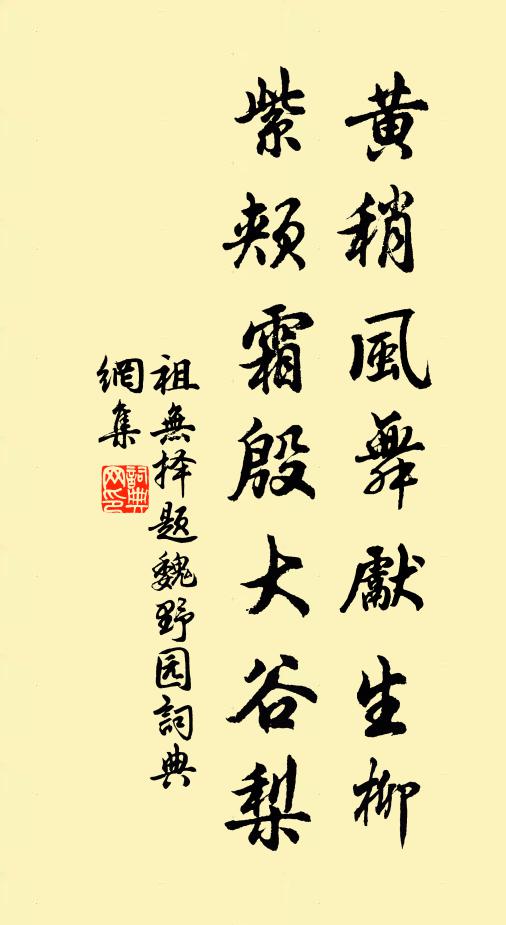 黄稍風舞獻生柳
紫頰霜殷大谷梨
祖無择题魏野园詞典
網集
詞典
网印